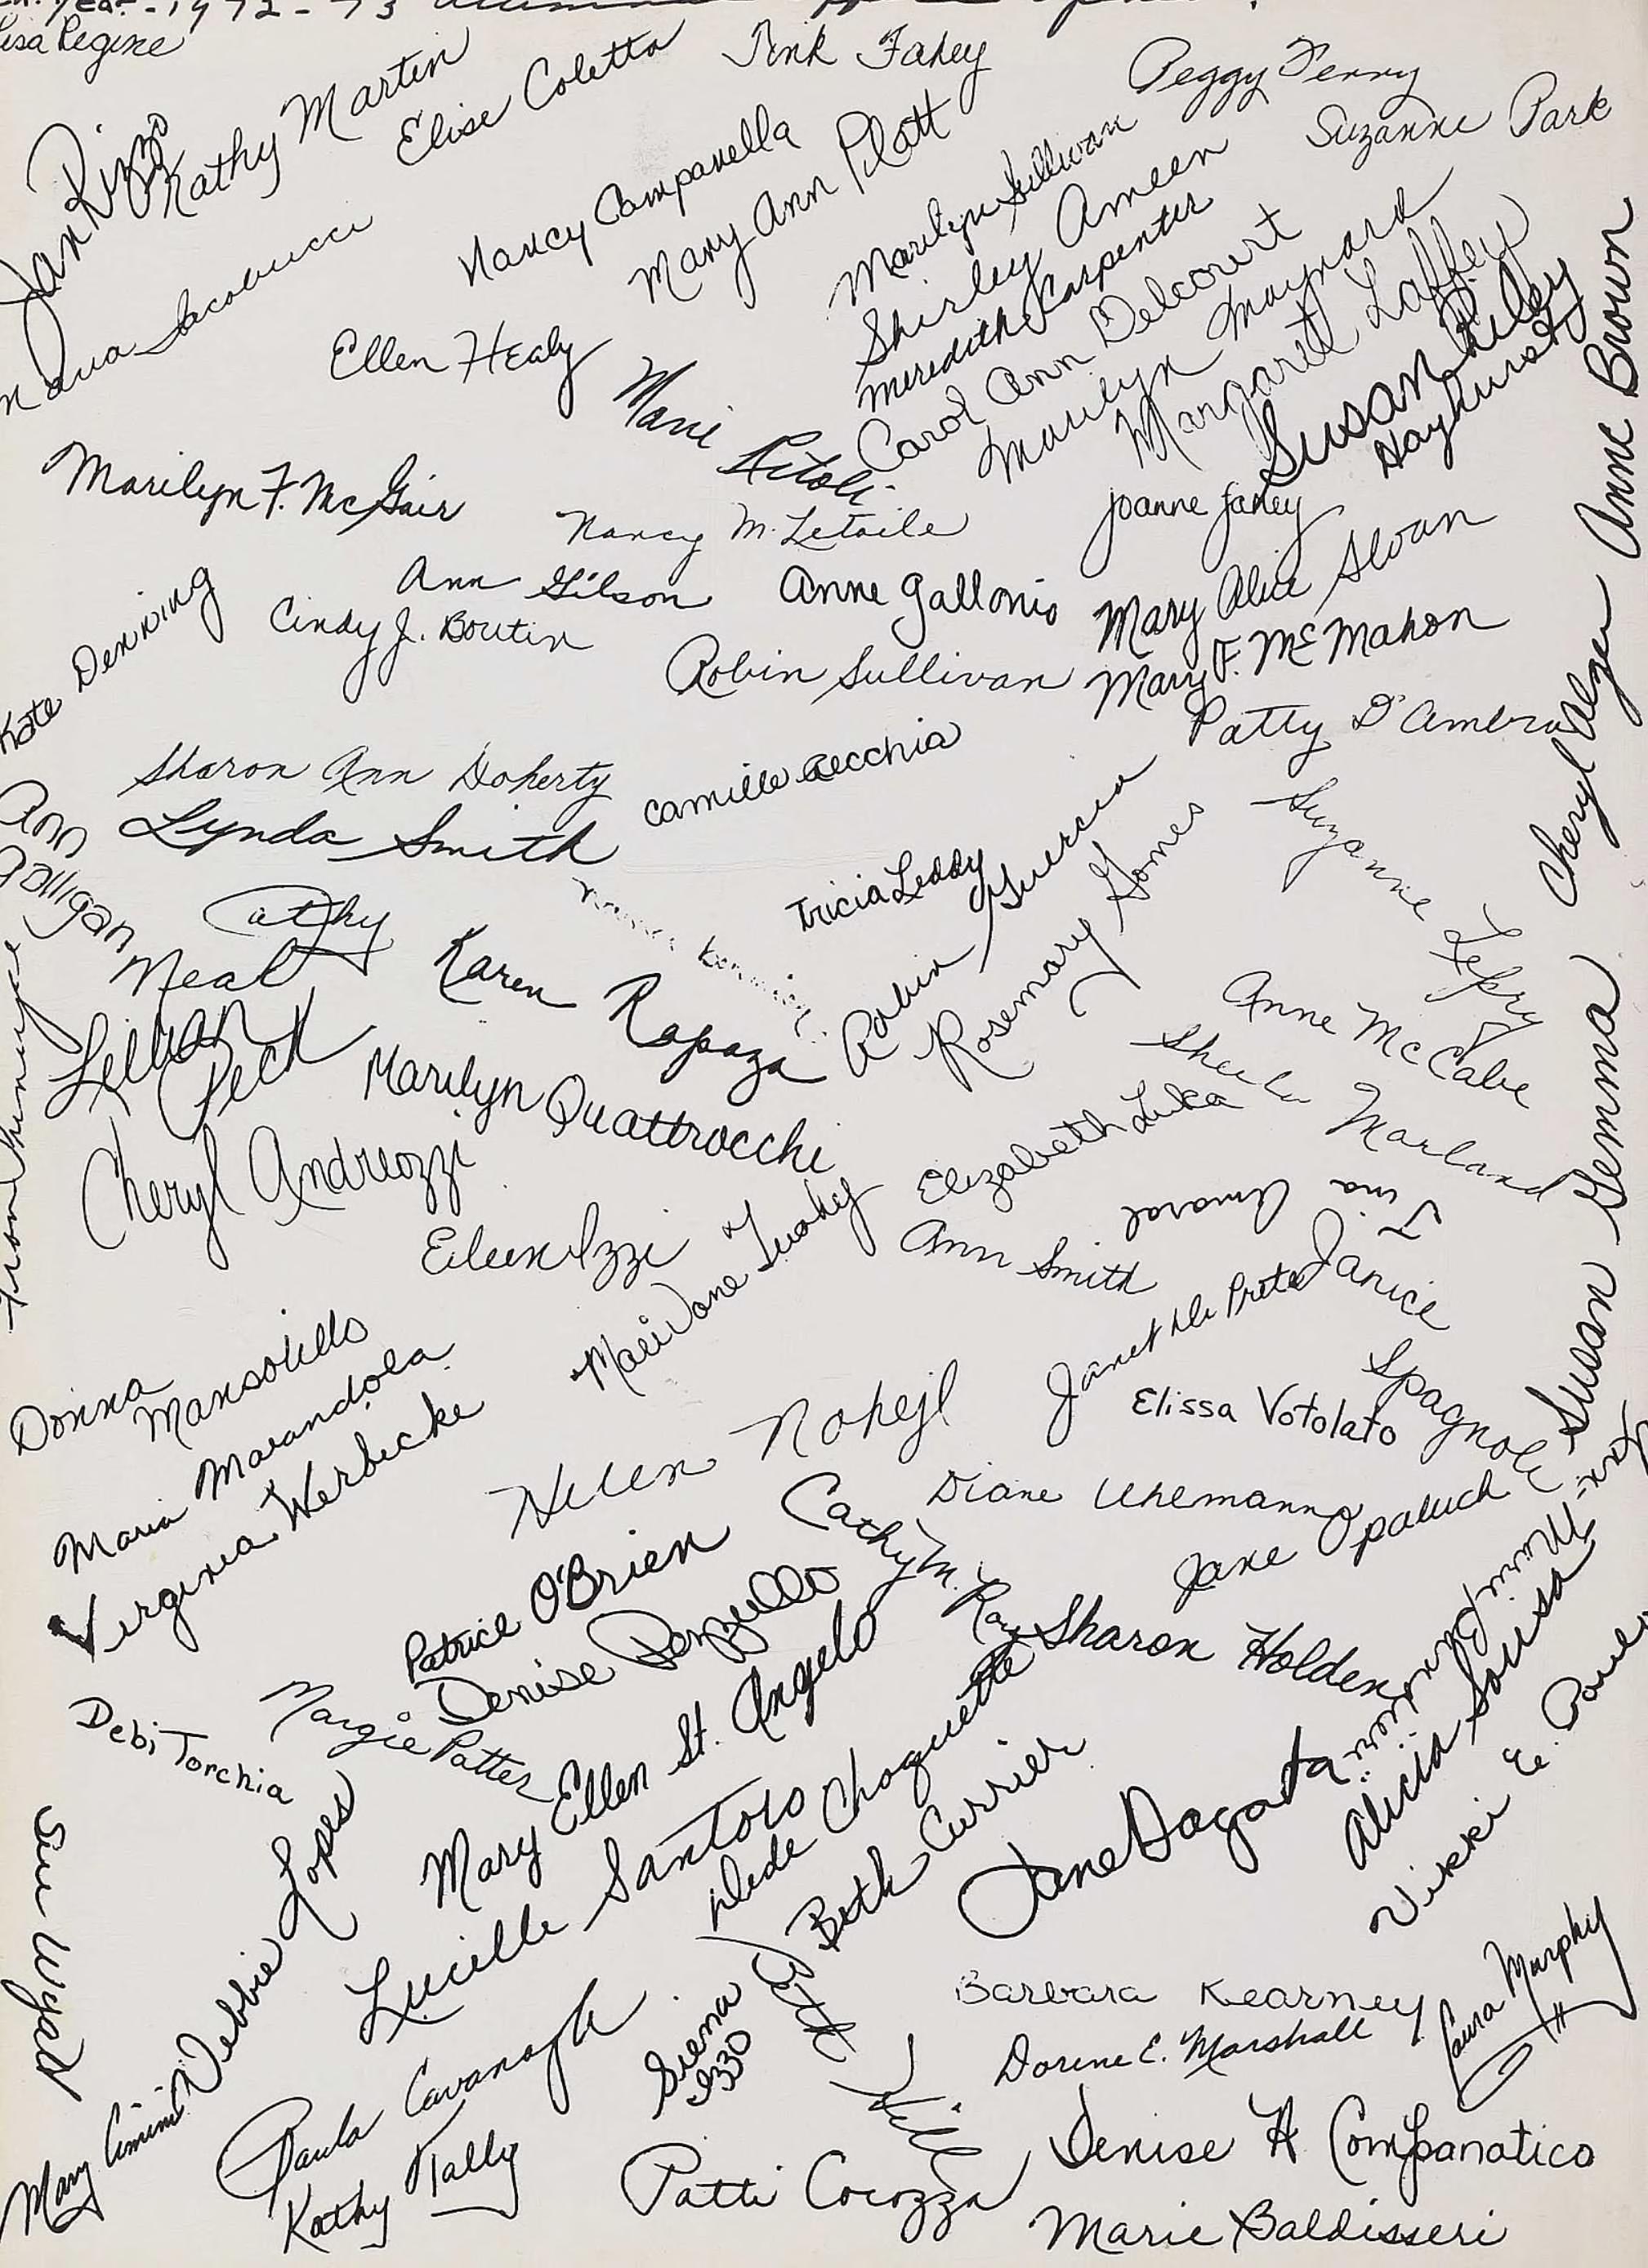 Year - 1972-73
Lisa Regine
Jan Rizzo
Kathy Martin
Elise Coletta
Tink Fahey
Peggy Ferry
Suzanne Park
Nancy Campanella
Mary Ann Pilott
Marilyn Sullivan
Shirley Ameen
Meredith Carpenter
Carol Ann Delcourt
Marilyn Maynard
Margaret Laffey
Susan Riley
Hayhurst
Anne Brown
Maria Iacobucci
Ellen Healy
Marie Ritoli
Marilyn F. McGair
Nancy M. Letoile
Joanne Fahey
Ann Gilson
Anne Gallonio
Mary Alice Sloan
Kate Denning
Cindy J. Boutin
Robin Sullivan
Mary F. McMahon
Patty D'Ambra
Cheryl Alger
Sharon Ann Doherty
Camille Aecchia
Lynda Smith
Ann Galligan
Tricia Leddy
Robin Guercia
Rosemary Gomes
Suzanne Lepry
Cathy Neal
Karen Rapoza
Anne McCabe
Lillian Peck
Marilyn Quattrocchi
Sheila Marland
Cheryl Andreozzi
Elizabeth Luka
Tina Amaral
Susan Gemma
Eileen Izzi
Mari Jane Tuohy
Ann Smith
Janet Del Prete
Janice Spagnole
Donna Mansolillo
Maria Marandola
Virginia Werbicke
Helen Nohejl
Elissa Votolato
Diane Uhlemann
Cathy M. Ray
Jane Opaluch
Patrice O'Brien
Denise Penzullo
Sharon Holden
Margie Potter
Debi Torchia
Mary Ellen St. Angelo
Lucille Santoro
Dede Choquette
Beth Currier
Jane Dagata
Alicia Sousa
Vikki E.
Sue Wyad
Debbie Lopes
Mary Cimini
Paula Cavanagh
Kathy Tally
Siena Izzo
Beth Hill
Barbara Kearney
Dorene E. Marshall
Laura Murphy
Denise A Companatico
Patti Cocozza
Marie Baldisseri